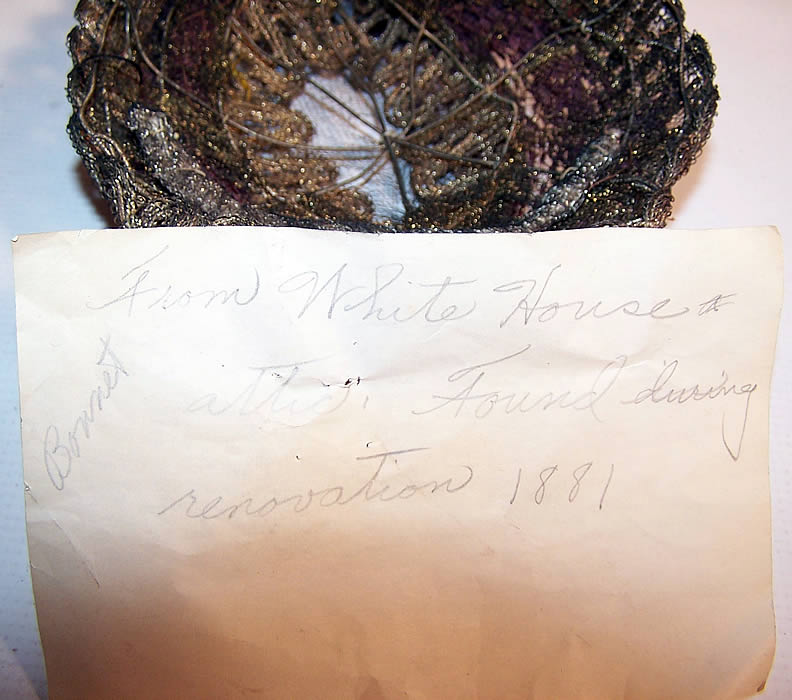 From White House
attic. Found during
renovation 1881
Bonnet